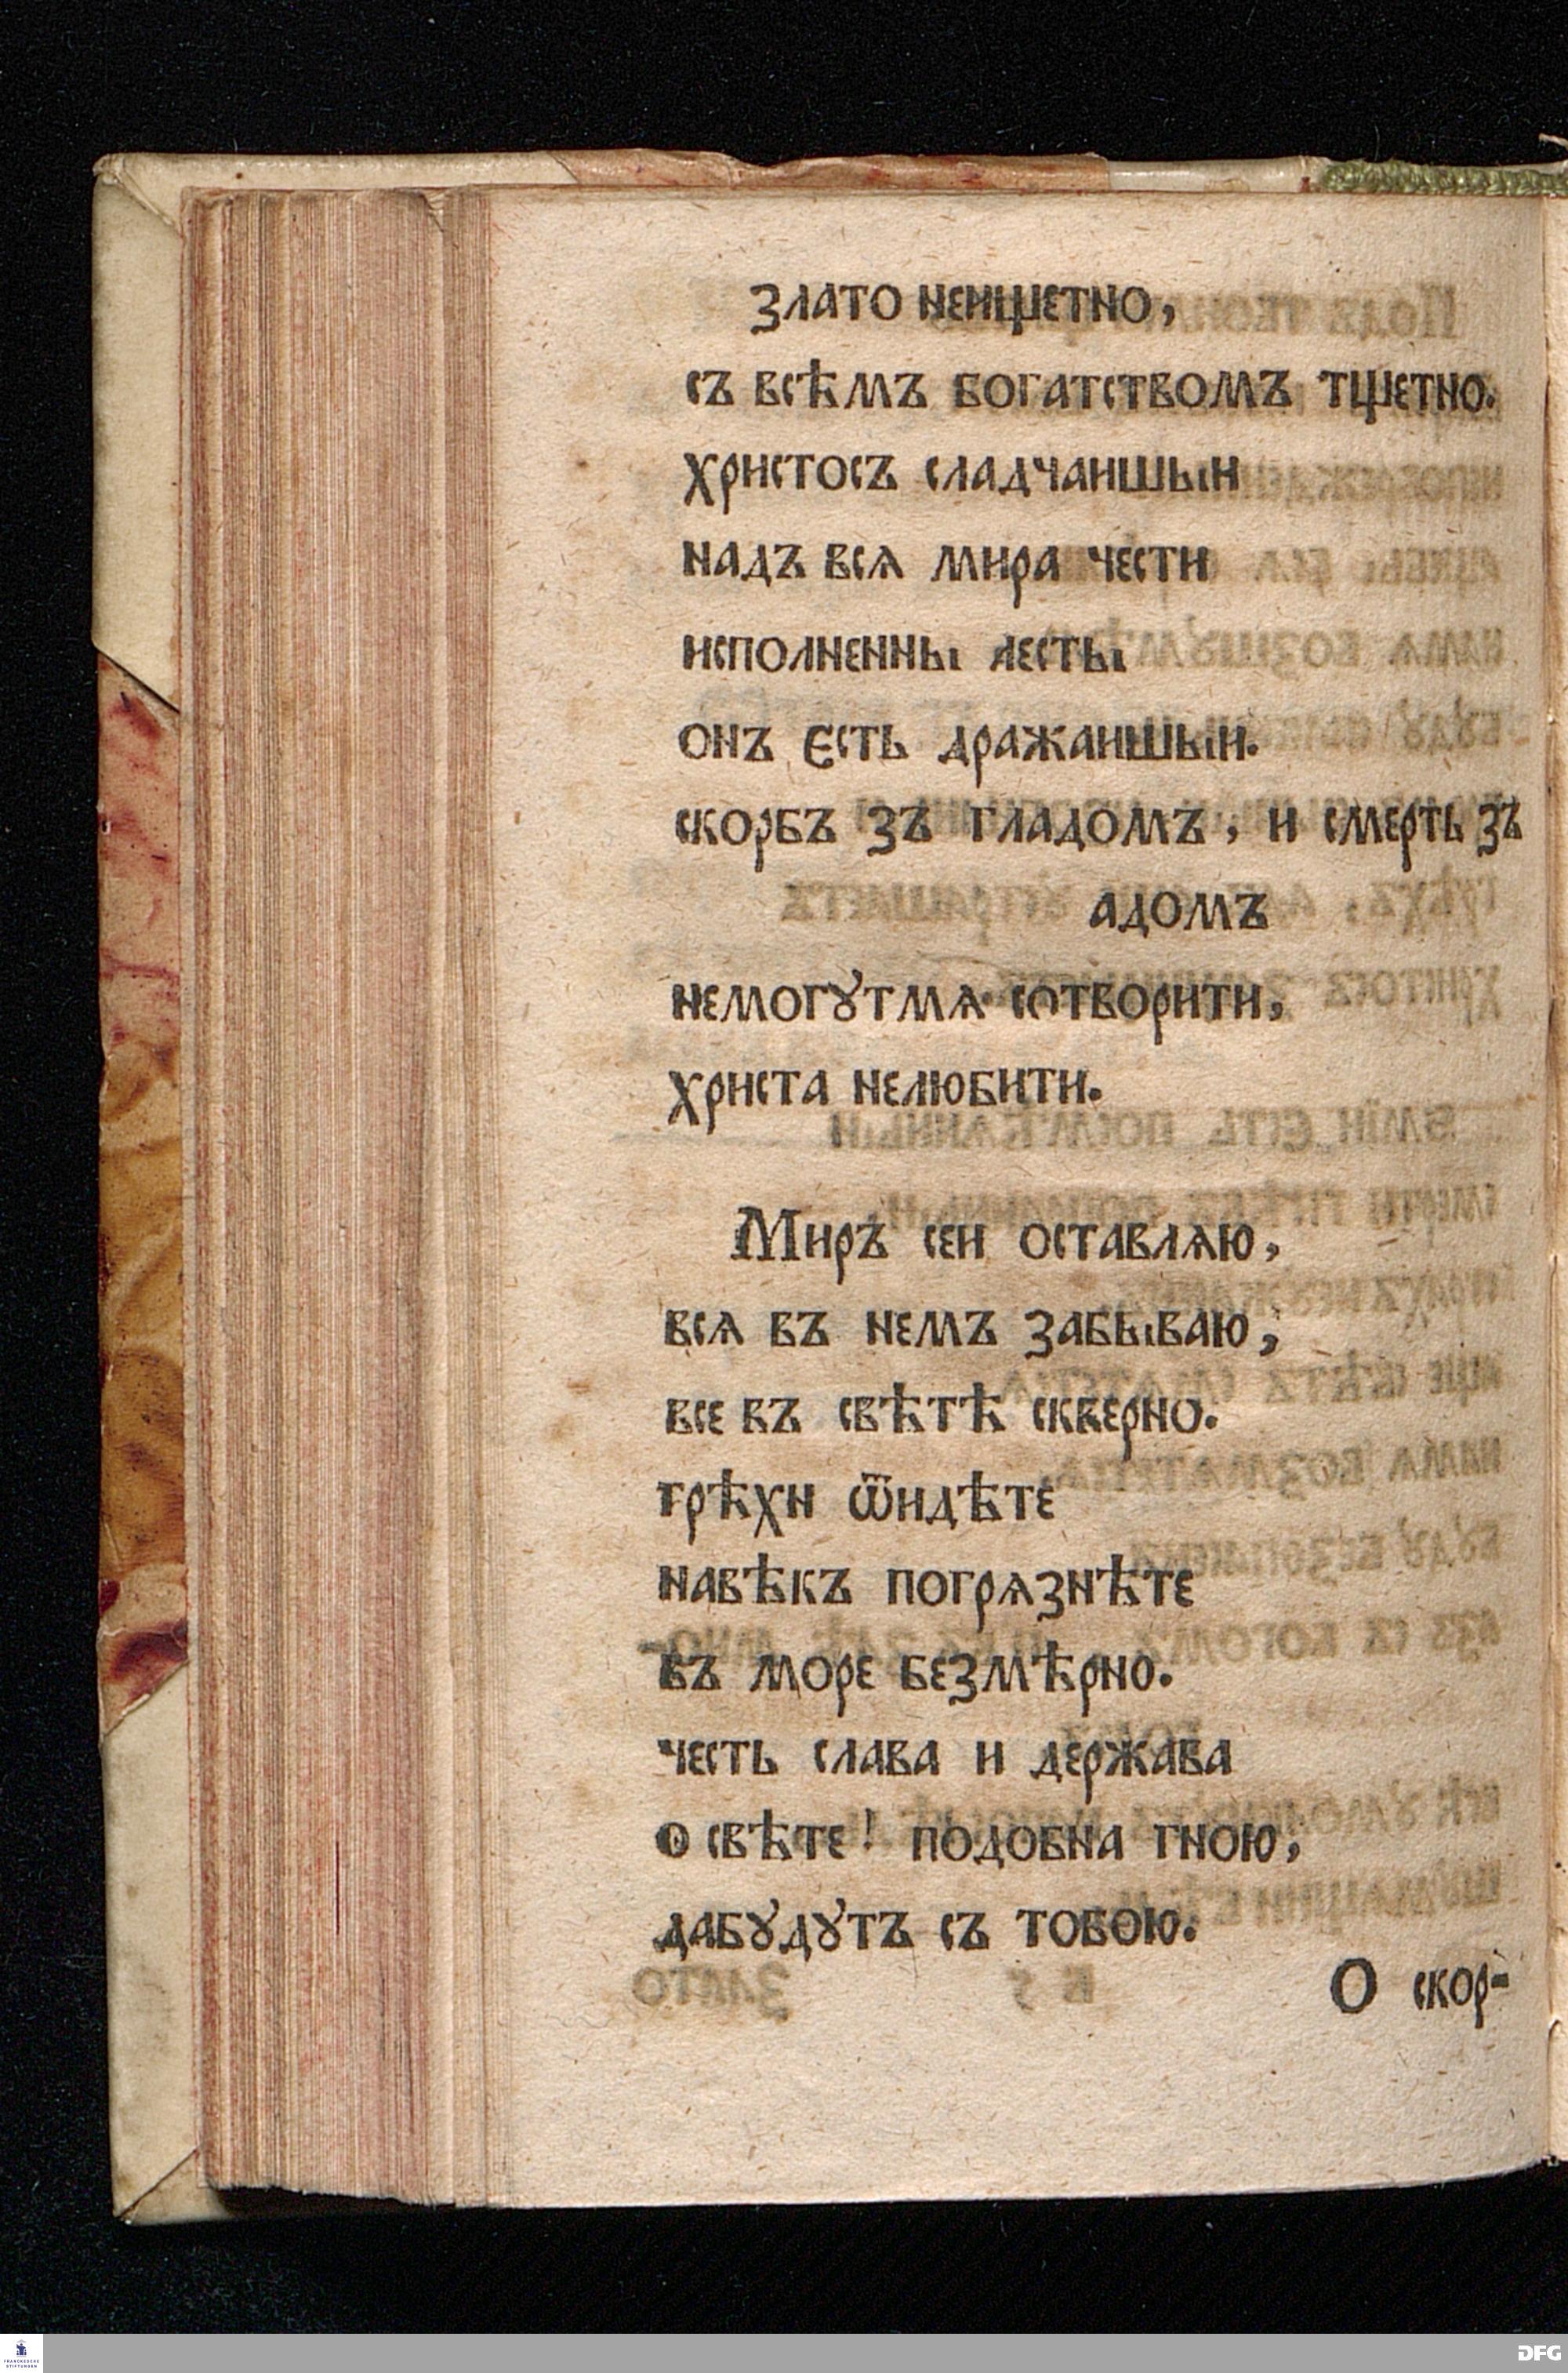 Злато неищетно,
съ всѣмъ богатством тщетно.
христосъ сладчаишыи
надъ вся мира чести
исполненны лесты
онъ єсть дражаишыи.
скорбъ зъ гладомъ, и смерть зъ
адомъ
немогꙋтмѧ сотворити,
христа нелюбити.
Миръ сеи оставлѧю,
всѧ въ немъ забываю,
все въ свѣтѣ скверно.
грѣхи ѿидѣте
навѣкъ погрѧзнѣте
въ море безмѣрно.
честь слава и держава
о свѣте! подобна гною,
дабꙋдꙋтъ съ тобою.
О скор-
FRANCKESCHE
STIFTUNGEN
DFG